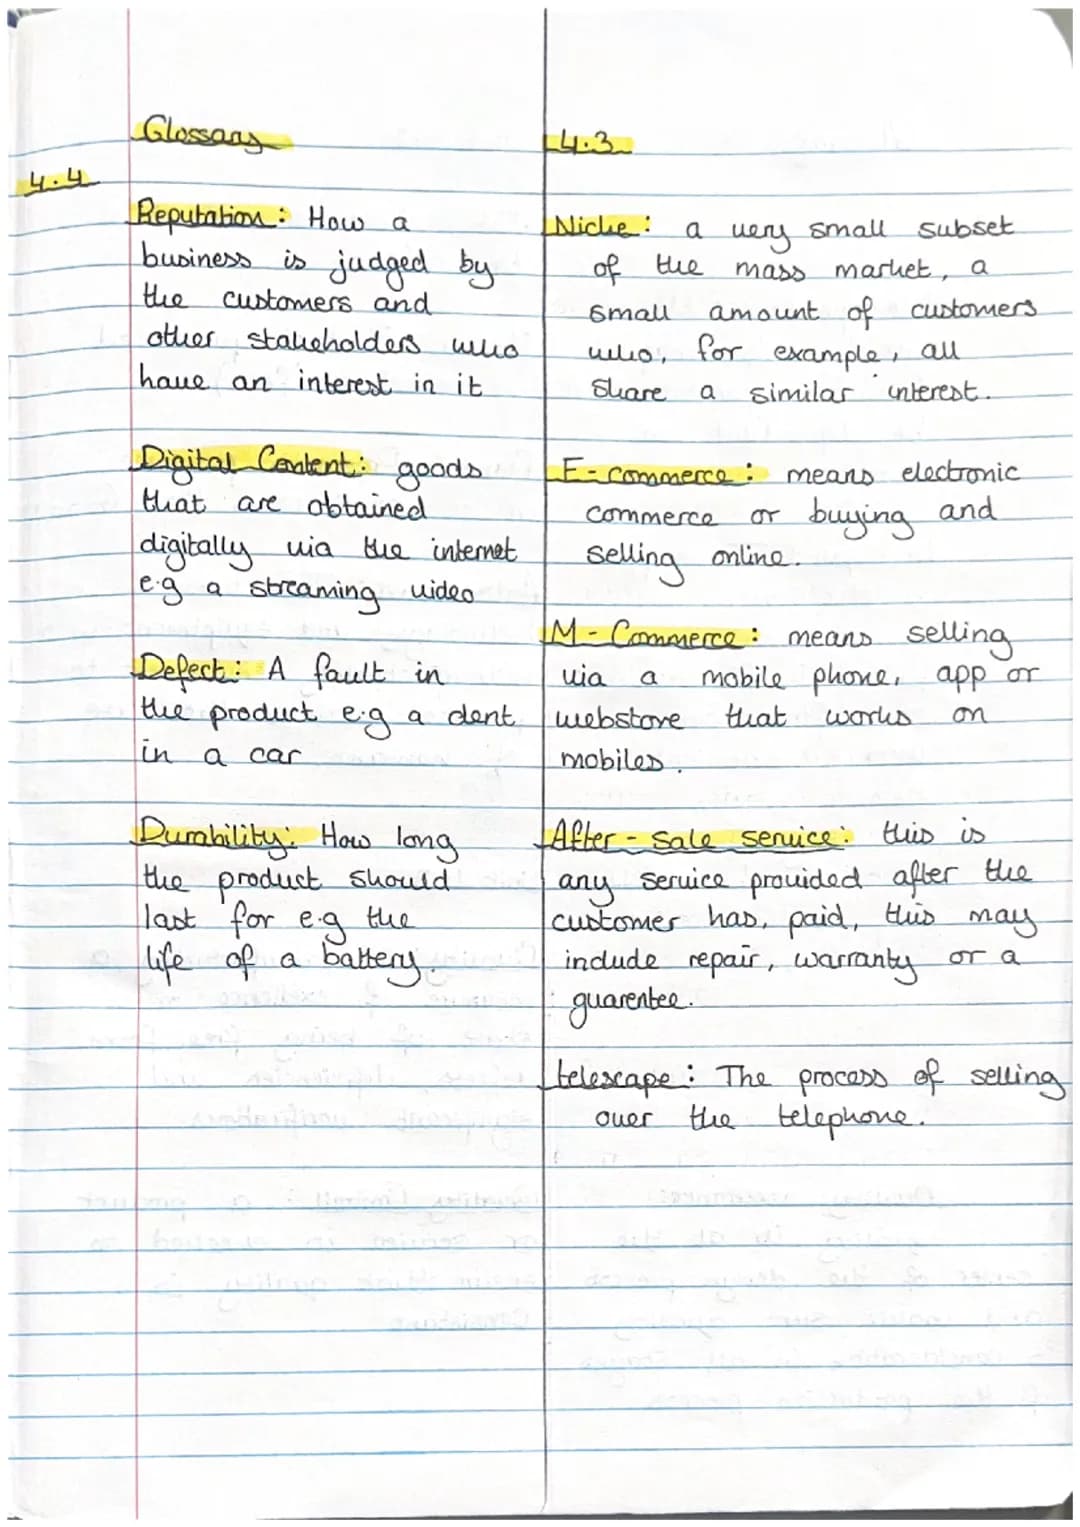 Glossary
4.4
Reputation: How a
business is judged by
the customers and
other stakeholders who
have an interest in it
Digital Content: goods
that are obtained
digitally via the internet
e.g a streaming video
Defect: A fault in
the product e.g a dent
in a car
Durability: How long
the product should
last for e.g the
life of a battery.
4.3
Niche: a very small subset
of the mass market, a
small amount of customers
who, for example, all
share a similar interest.
E-commerce: means electronic
commerce or buying and
selling online.
M-Commerce: means selling
via a mobile phone, app or
webstore that works on
mobiles.
After-sale service: this is
any service provided after the
customer has, paid, this may
include repair, warranty or a
guarentee.
telescape: The process of selling
over the telephone.